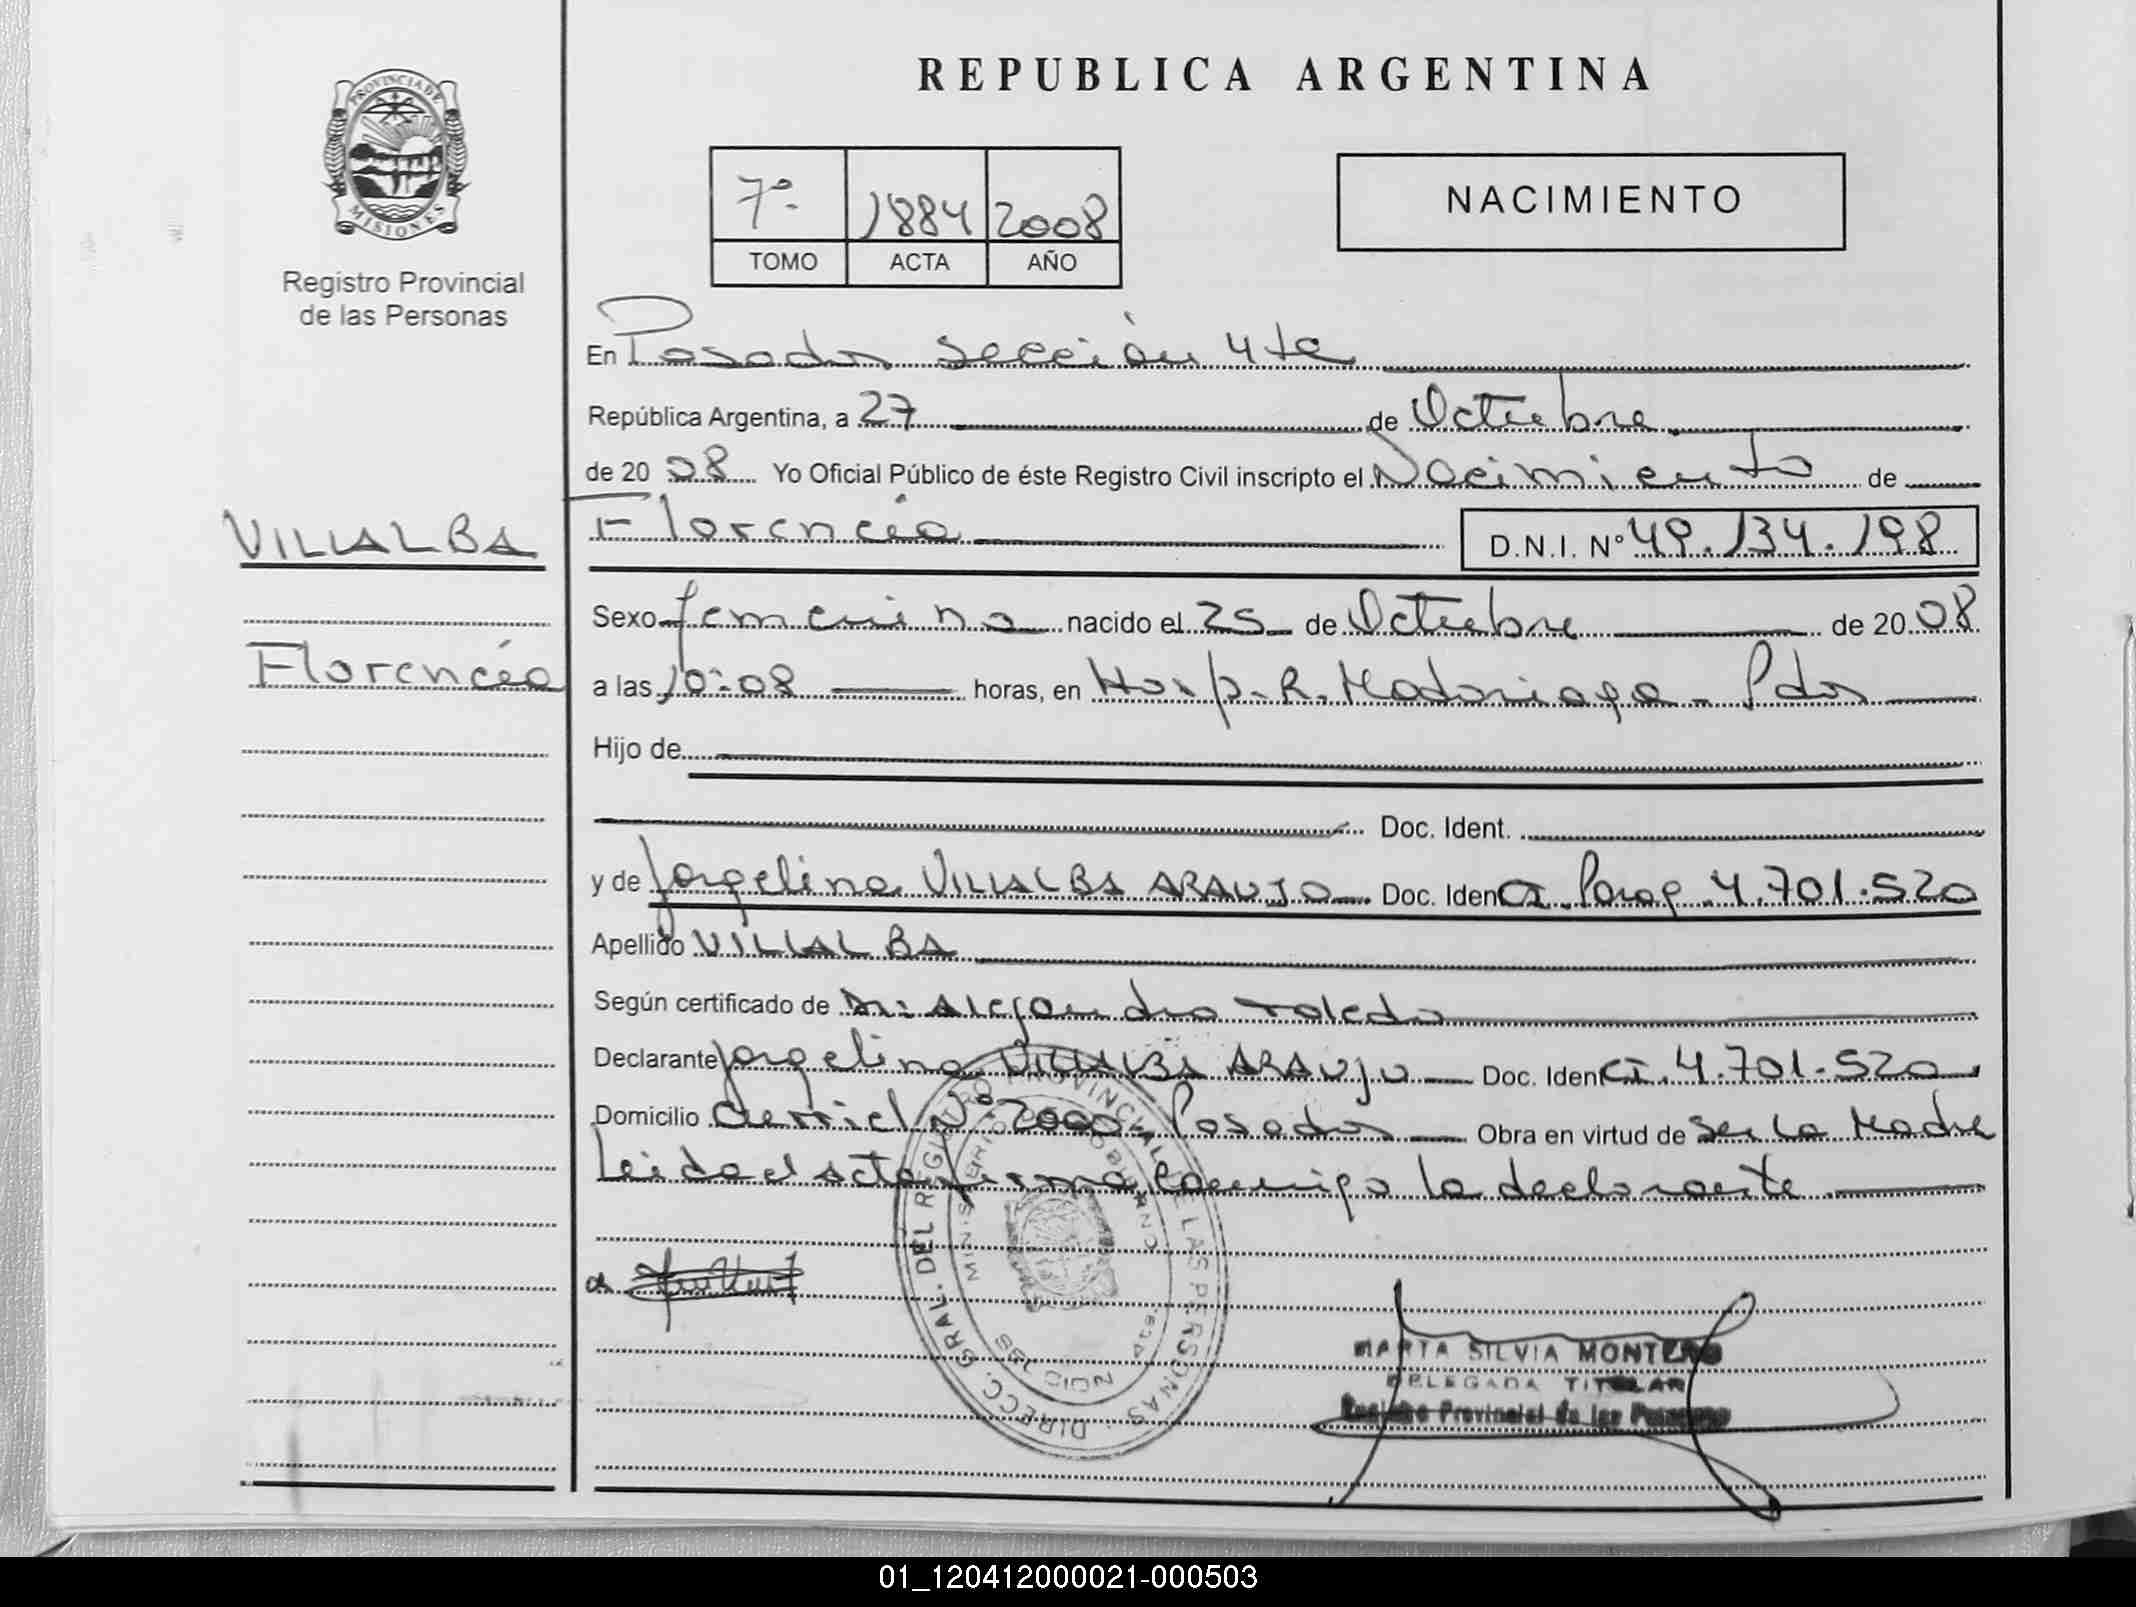 REPUBLICA ARGENTINA
PROVINCIA DE
MISIONES
Registro Provincial
de las Personas
7º
1884
2008
TOMO
ACTA
AÑO
NACIMIENTO
En Posadas, Sección 4ta
República Argentina, a 27 de Octubre
de 20 08 Yo Oficial Público de éste Registro Civil inscripto el Nacimiento de
VILLALBA
Florencia
Florencia D.N.I. Nº 49.134.198
Sexo femenino nacido el 25 de Octubre de 20 08
a las 10:08 horas, en Hosp. R. Madariaga - Pdas
Hijo de
Doc. Ident.
y de Jorgelina VILLALBA ARAUJO Doc. Ident CI. Parag. 4.701.520
Apellido VILLALBA
Según certificado de Dr: Alejandro Toledo
Declarante Jorgelina VILLALBA ARAUJO Doc. Ident CI. 4.701.520
Domicilio Nº 2000 - Posadas Obra en virtud de ser la Madre
Leida el acta firma conmigo la declarante
DIRECC. GRAL. DEL REGISTRO PROVINCIAL DE LAS PERSONAS
MARTA SILVIA MONTERO
DELEGADA TITULAR
Registro Provincial de las Personas
01_120412000021-000503